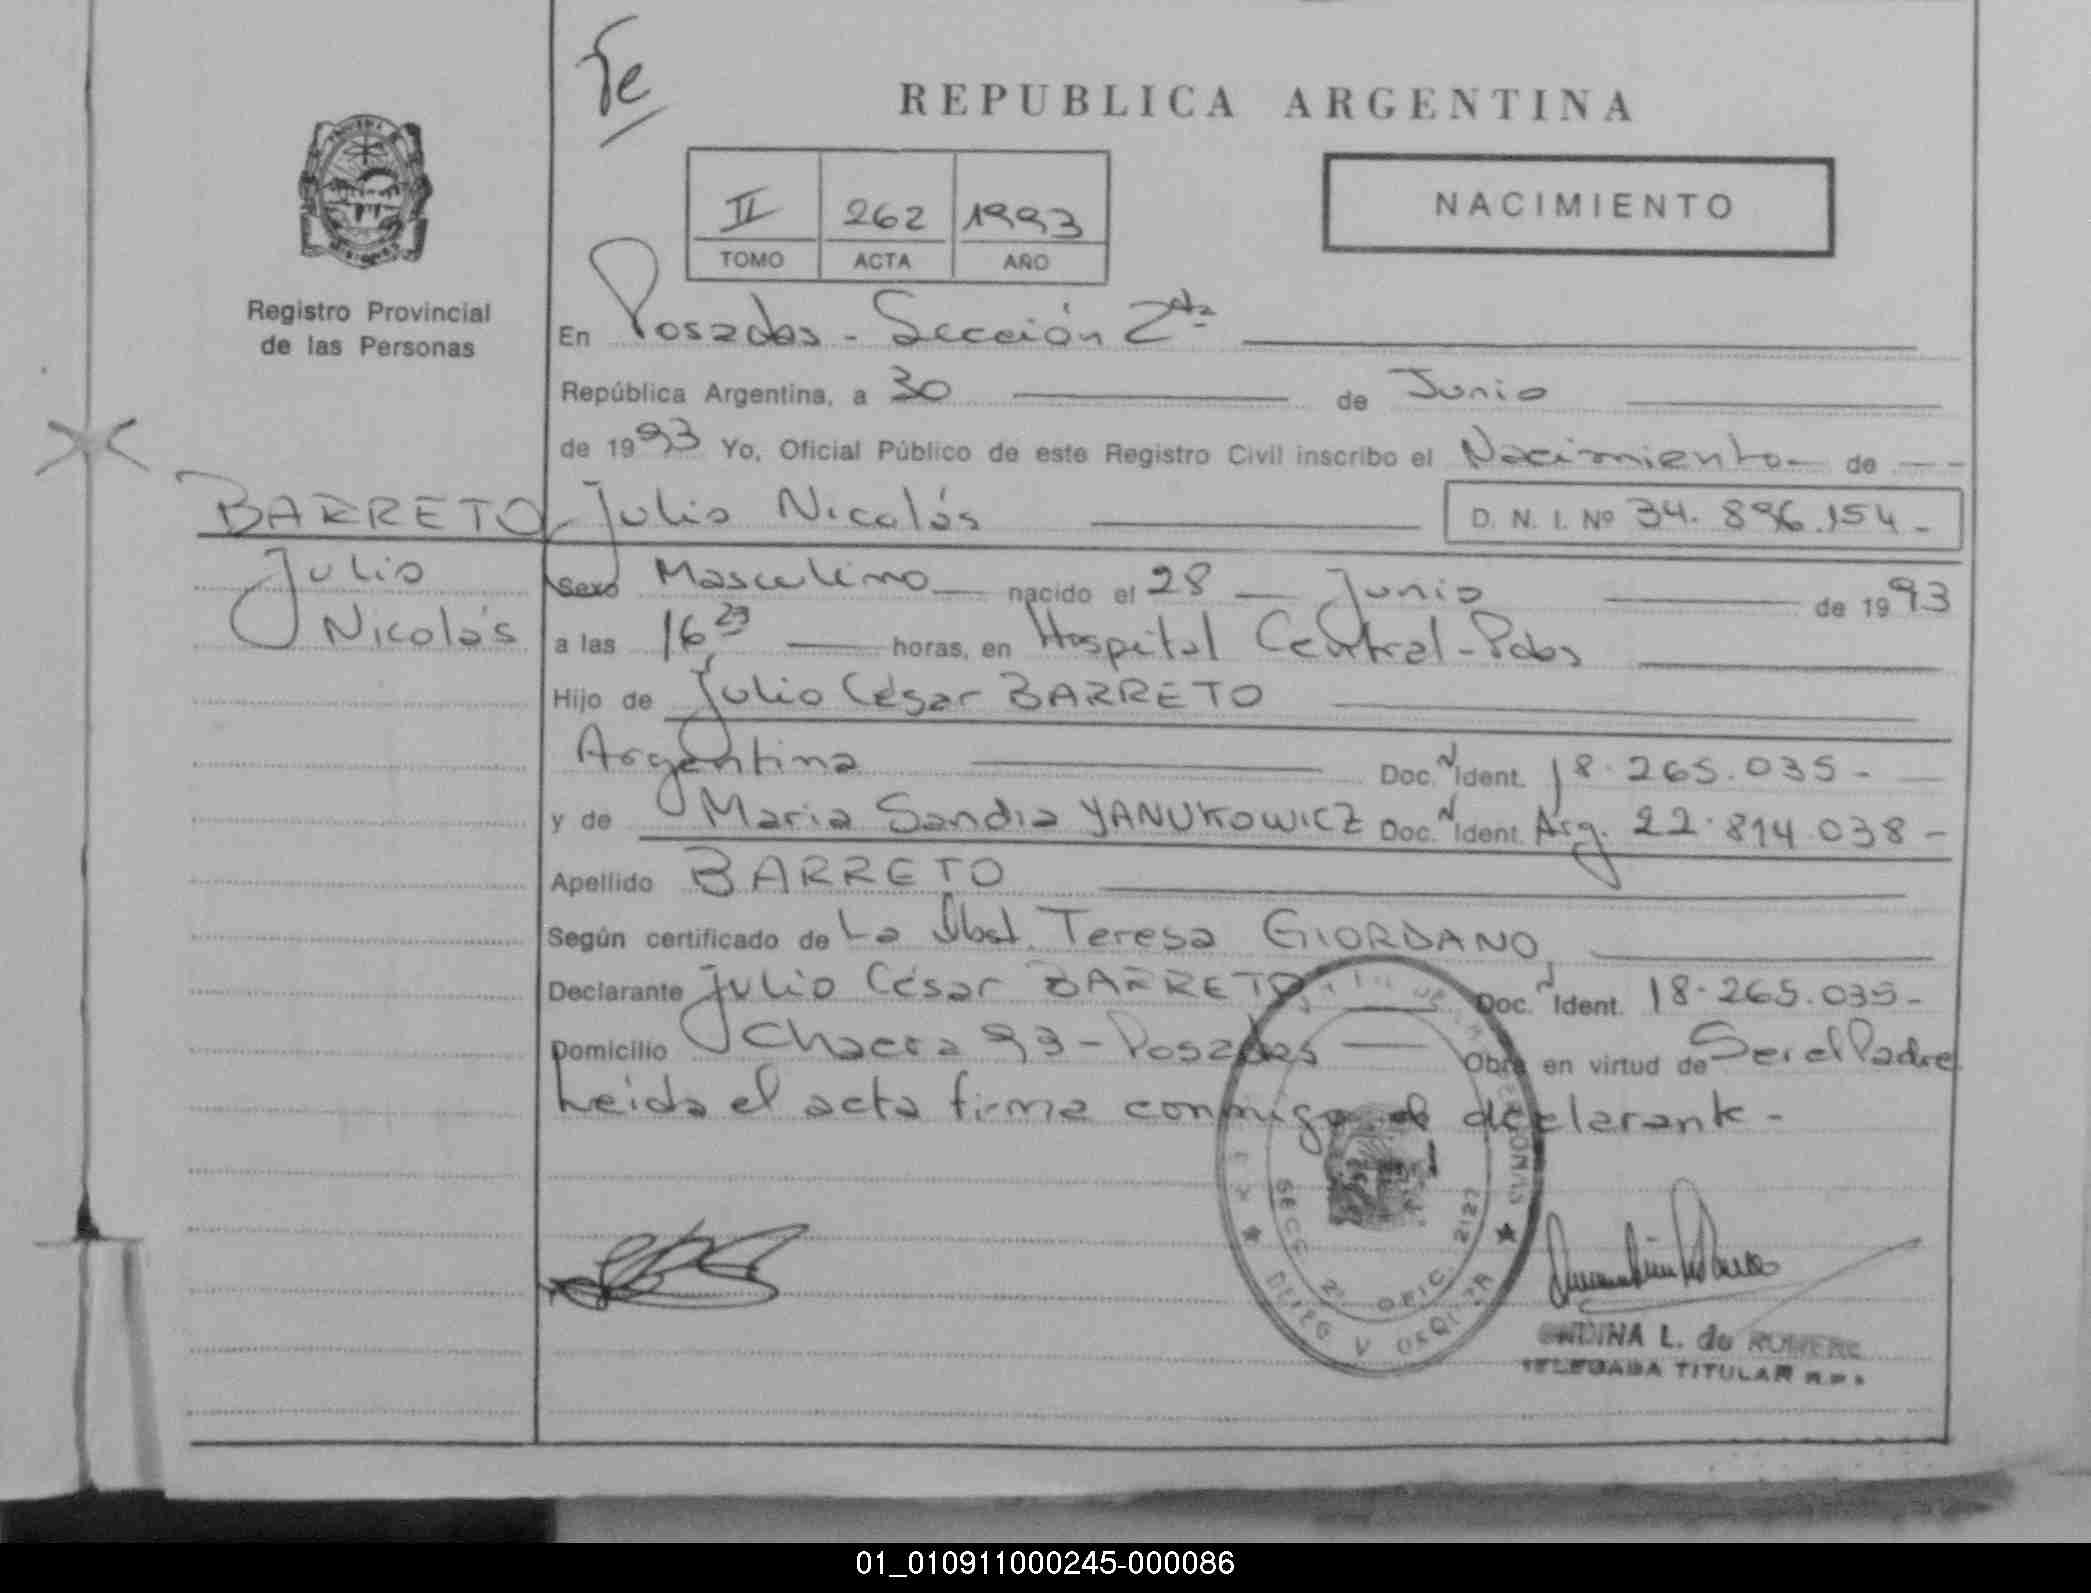 Te
REPUBLICA ARGENTINA
NACIMIENTO
II 262 1993
TOMO ACTA AÑO
Registro Provincial
de las Personas
En Posadas - Sección 2da
República Argentina, a 30 de Junio
de 1993 Yo, Oficial Público de este Registro Civil inscribo el Nacimiento de
BARRETO Julio Nicolás D. N. I. Nº 34.896.154-
Julio
Nicolás
Sexo Masculino nacido el 28 Junio de 1993
a las 16 23 horas, en Hospital Central-Pdas
Hijo de Julio César BARRETO
Argentina Doc. N Ident. 18.265.035-
y de Maria Sandra YANUKOWICZ Doc. N Ident. Arg. 22.814.038-
Apellido BARRETO
Según certificado de La Obst. Teresa GIORDANO
Declarante Julio César BARRETO Doc. N Ident. 18.265.035-
Domicilio Chacra 93-Posadas Obra en virtud de Ser el Padre
Leida el acta firma conmigo el declarante-
SECC. 2ª OFIC. 2127
L. de ROMERO
DELEGADA TITULAR R.P.
01_010911000245-000086